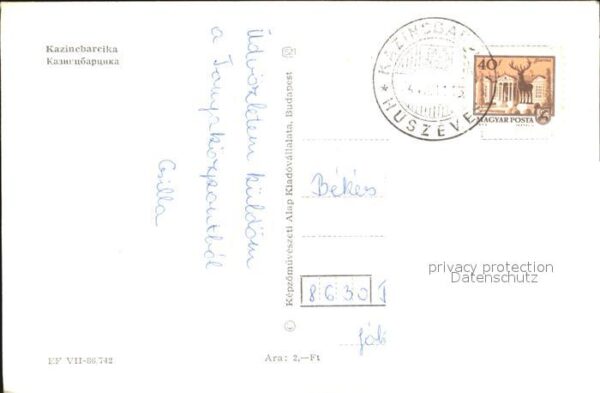 Kazincbarcika
Казинцбарцика
Üdvözletem küldöm
a Tanyaközpontból
Csilla
Képzőművészeti Alap Kiadóvállalata, Budapest
KAZINCBARCIKA
HUSZÉVES
40f
MAGYAR POSTA
Békési
8630
privacy protection
Datenschutz
EF VII-86.742
Ara: 2,—Ft